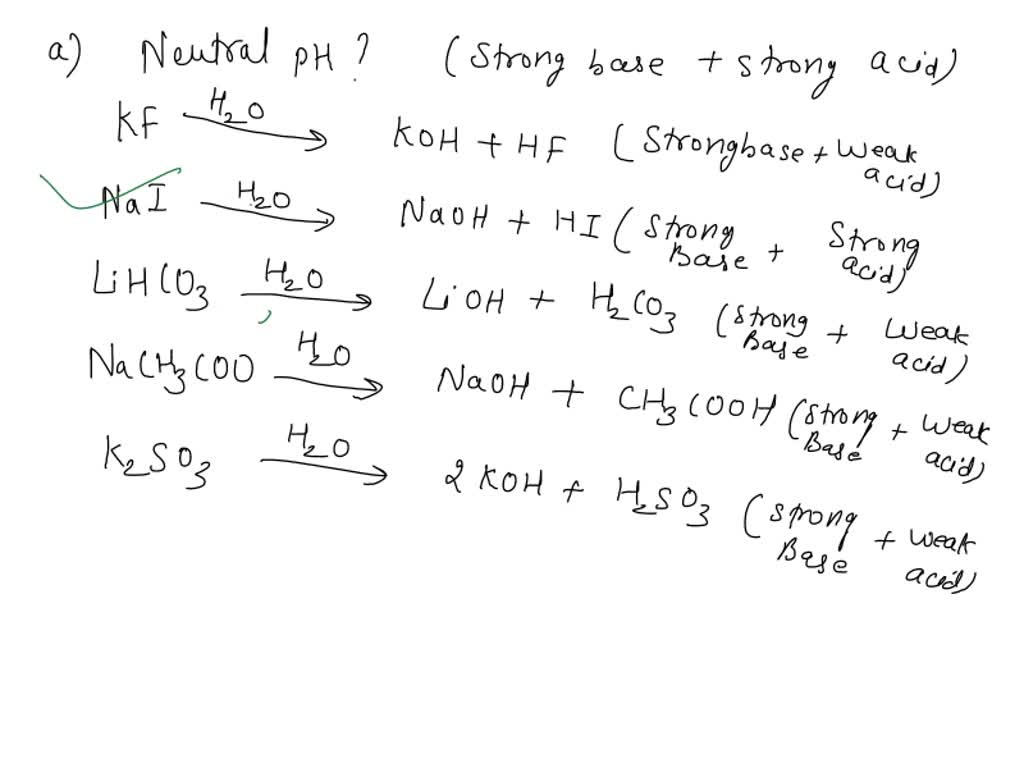 a) Neutral pH? (Strong base + strong acid)
KF H₂O → KOH + HF (Strong base + Weak acid)
NaI H₂O → NaOH + HI (Strong Base + Strong acid)
LiHCO₃ H₂O → LiOH + H₂CO₃ (Strong Base + Weak acid)
NaCH₃COO H₂O → NaOH + CH₃COOH (Strong Base + Weak acid)
K₂SO₃ H₂O → 2KOH + H₂SO₃ (Strong Base + Weak acid)